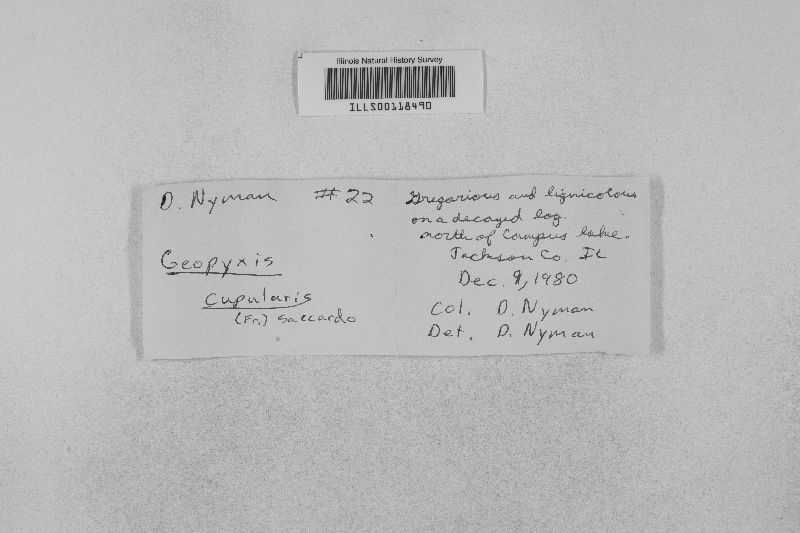 Illinois Natural History Survey
ILLS00118490
D. Nyman #22
Geopyxis
cupularis
(Fr.) Saccardo
Gregarious and lignicolous
on a decayed log.
north of Campus lake.
Jackson Co. IL
Dec. 9, 1980
Col. D. Nyman
Det. D. Nyman